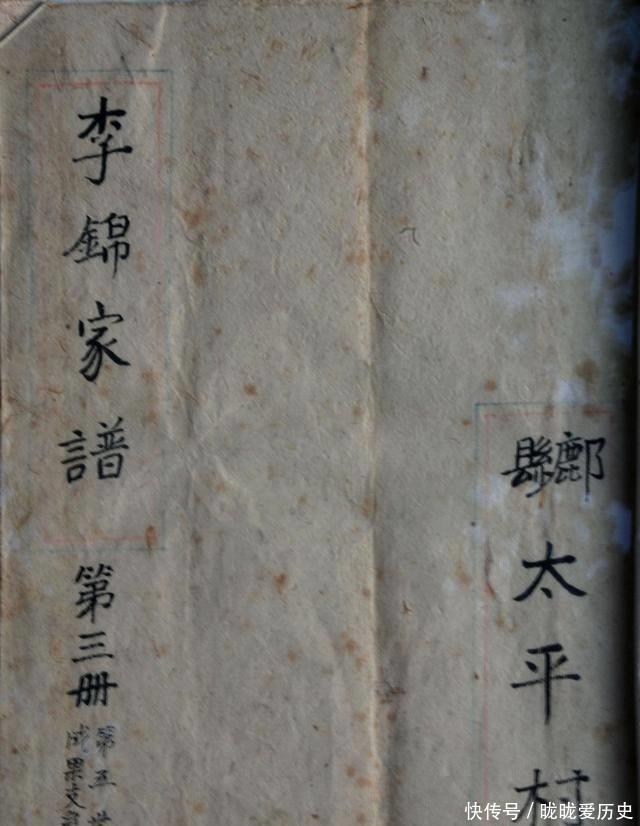 鄜縣
太平村
李錦家譜
第三册
第五
成果支
快传号 / 眬眬爱历史